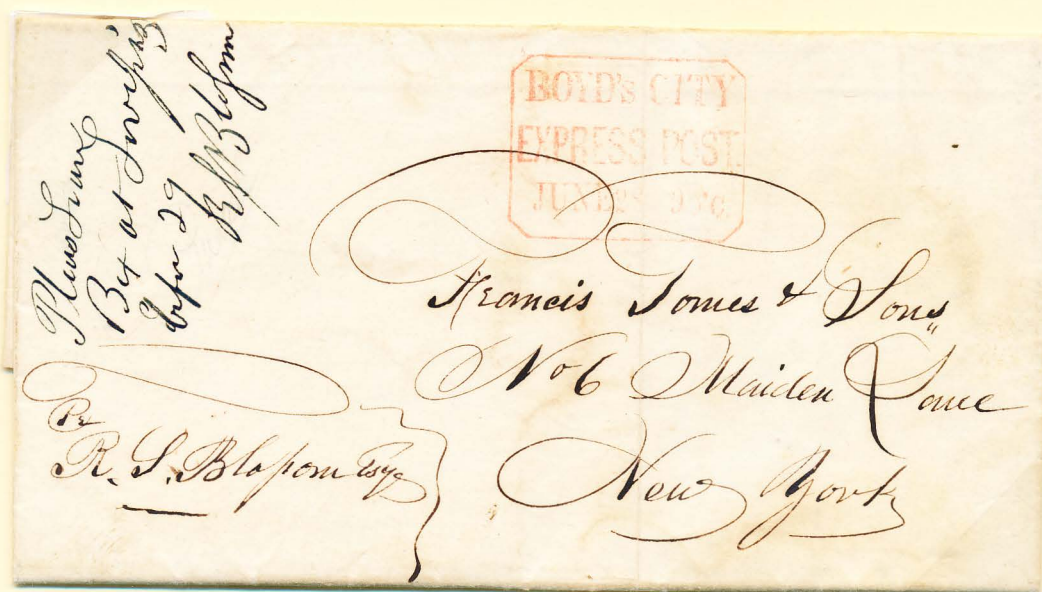 BOYD's CITY
EXPRESS POST.
JUNE 28 9
Please Leave
Box at
29
R S Bloſsom
Francis Tomes & Sons
No 6 Maiden Lane
New York
Pr
R. S. Bloſsom Esqr